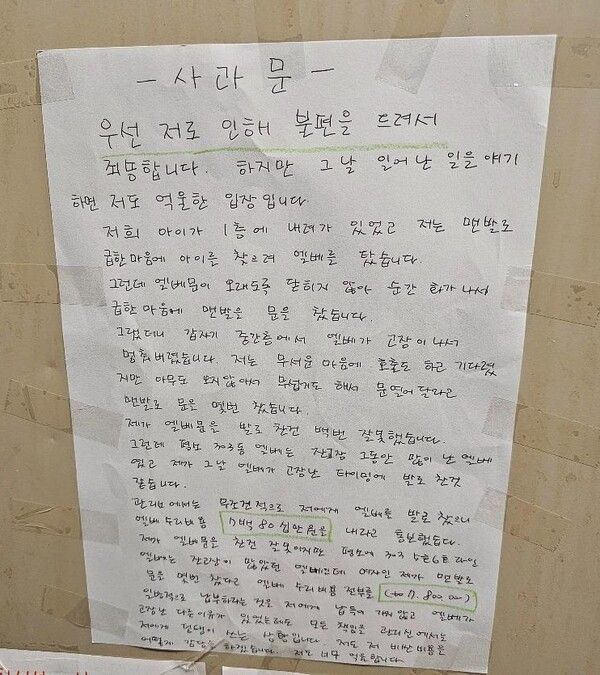 - 사 과 문 -
우선 저로 인해 불편을 드려서
죄송합니다. 하지만 그날 일어난 일을 얘기
하면 저도 억울한 입장입니다.
저희 아이가 1층에 내려가 있었고 저는 맨발로
급한마음에 아이를 찾으려 엘베를 탔습니다.
그런데 엘베문이 오래도록 닫히지 않아 순간 화가나서
급한마음에 맨발을 문을 찼습니다.
그랬더니 갑자기 중간층에서 엘베가 고장이나서
멈춰버렸습니다. 저는 무서운 마음에 호출도 하고 기다렸
지만 아무도 오지않아서 무섭기도 해서 문열어달라고
맨발로 문을 몇번 찼습니다.
제가 엘베문을 발로 찬건 백번 잘못했습니다.
그런데 평소 303동 엘베는 잔고장 그동안 많이 난 엘베
였고 제가 그날 엘베가 고장난 타이밍에 발로 찬것
같습니다.
관리소에서는 무조건적으로 저에게 엘베를 발로 찼으니
엘베 수리비용 7백 80 십만원을 내라고 통보했습니다.
제가 엘베문을 찬건 잘못이지만 평소에 303 5호6호 라인
엘베는 잔고장이 많았던 엘베인데 여자인 제가 맨발로
문을 몇번 찼다고 엘베 수리비용 전부를 7.800.000)
일방적으로 납부하라는 것은 저에게 납득이 가지 않고 엘베가
고장난 다른이유가 있었는데도 모든 책임을 관리실에서는
저에게 덤탱이 쓰는 상황입니다 저도 저 비싼비용을
어떻게 감당 하겠습니다. 저도 너무 억울합니다.